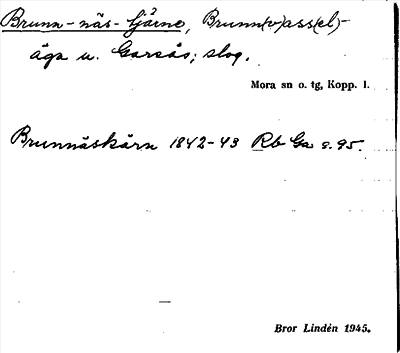 Brunn-näs-tjärne, Brunn(v)ass(el)-
äga u. Garsås; skog.
Mora sn o. tg, Kopp. l.
Brunnäskärn 1842-43 Rb Ga s. 95.
Bror Lindén 1945.